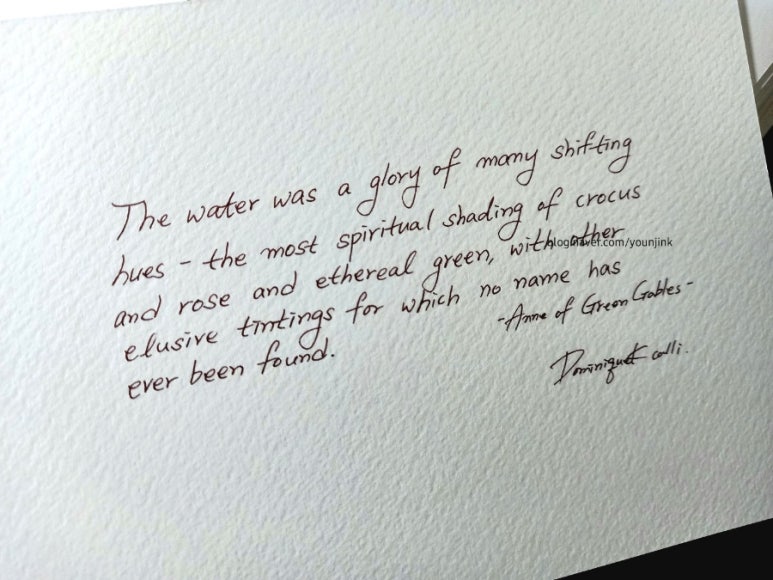 The water was a glory of many shifting
hues - the most spiritual shading of crocus
and rose and ethereal green, with other
elusive tintings for which no name has
ever been found.
- Anne of Green Gables -
Dominique calli.
blog.naver.com/younjink